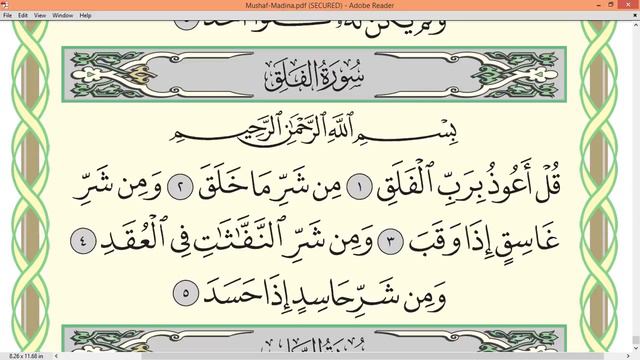 Mushaf-Madina.pdf (SECURED) - Adobe Reader
File Edit View Window Help
وَلَمْ يَكُن لَّهُۥ كُفُوًا أَحَدٌ
سُورَةُ الفَلَقِ
بِسْمِ ٱللَّهِ ٱلرَّحْمَٰنِ ٱلرَّحِيمِ
قُلْ أَعُوذُ بِرَبِّ ٱلْفَلَقِ ١ مِن شَرِّ مَا خَلَقَ ٢ وَمِن شَرِّ
غَاسِقٍ إِذَا وَقَبَ ٣ وَمِن شَرِّ ٱلنَّفَّٰثَٰتِ فِى ٱلْعُقَدِ ٤
وَمِن شَرِّ حَاسِدٍ إِذَا حَسَدَ ٥
8.26 x 11.68 in